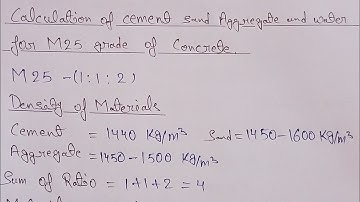 Calculation of cement sand Aggregate and water
for M25 grade of Concrete.
M25 - (1:1:2)
Density of Materials
Cement = 1440 Kg/m³ Sand = 1450-1600 Kg/m³
Aggregate = 1450-1500 Kg/m³
Sum of Ratio = 1+1+2 = 4